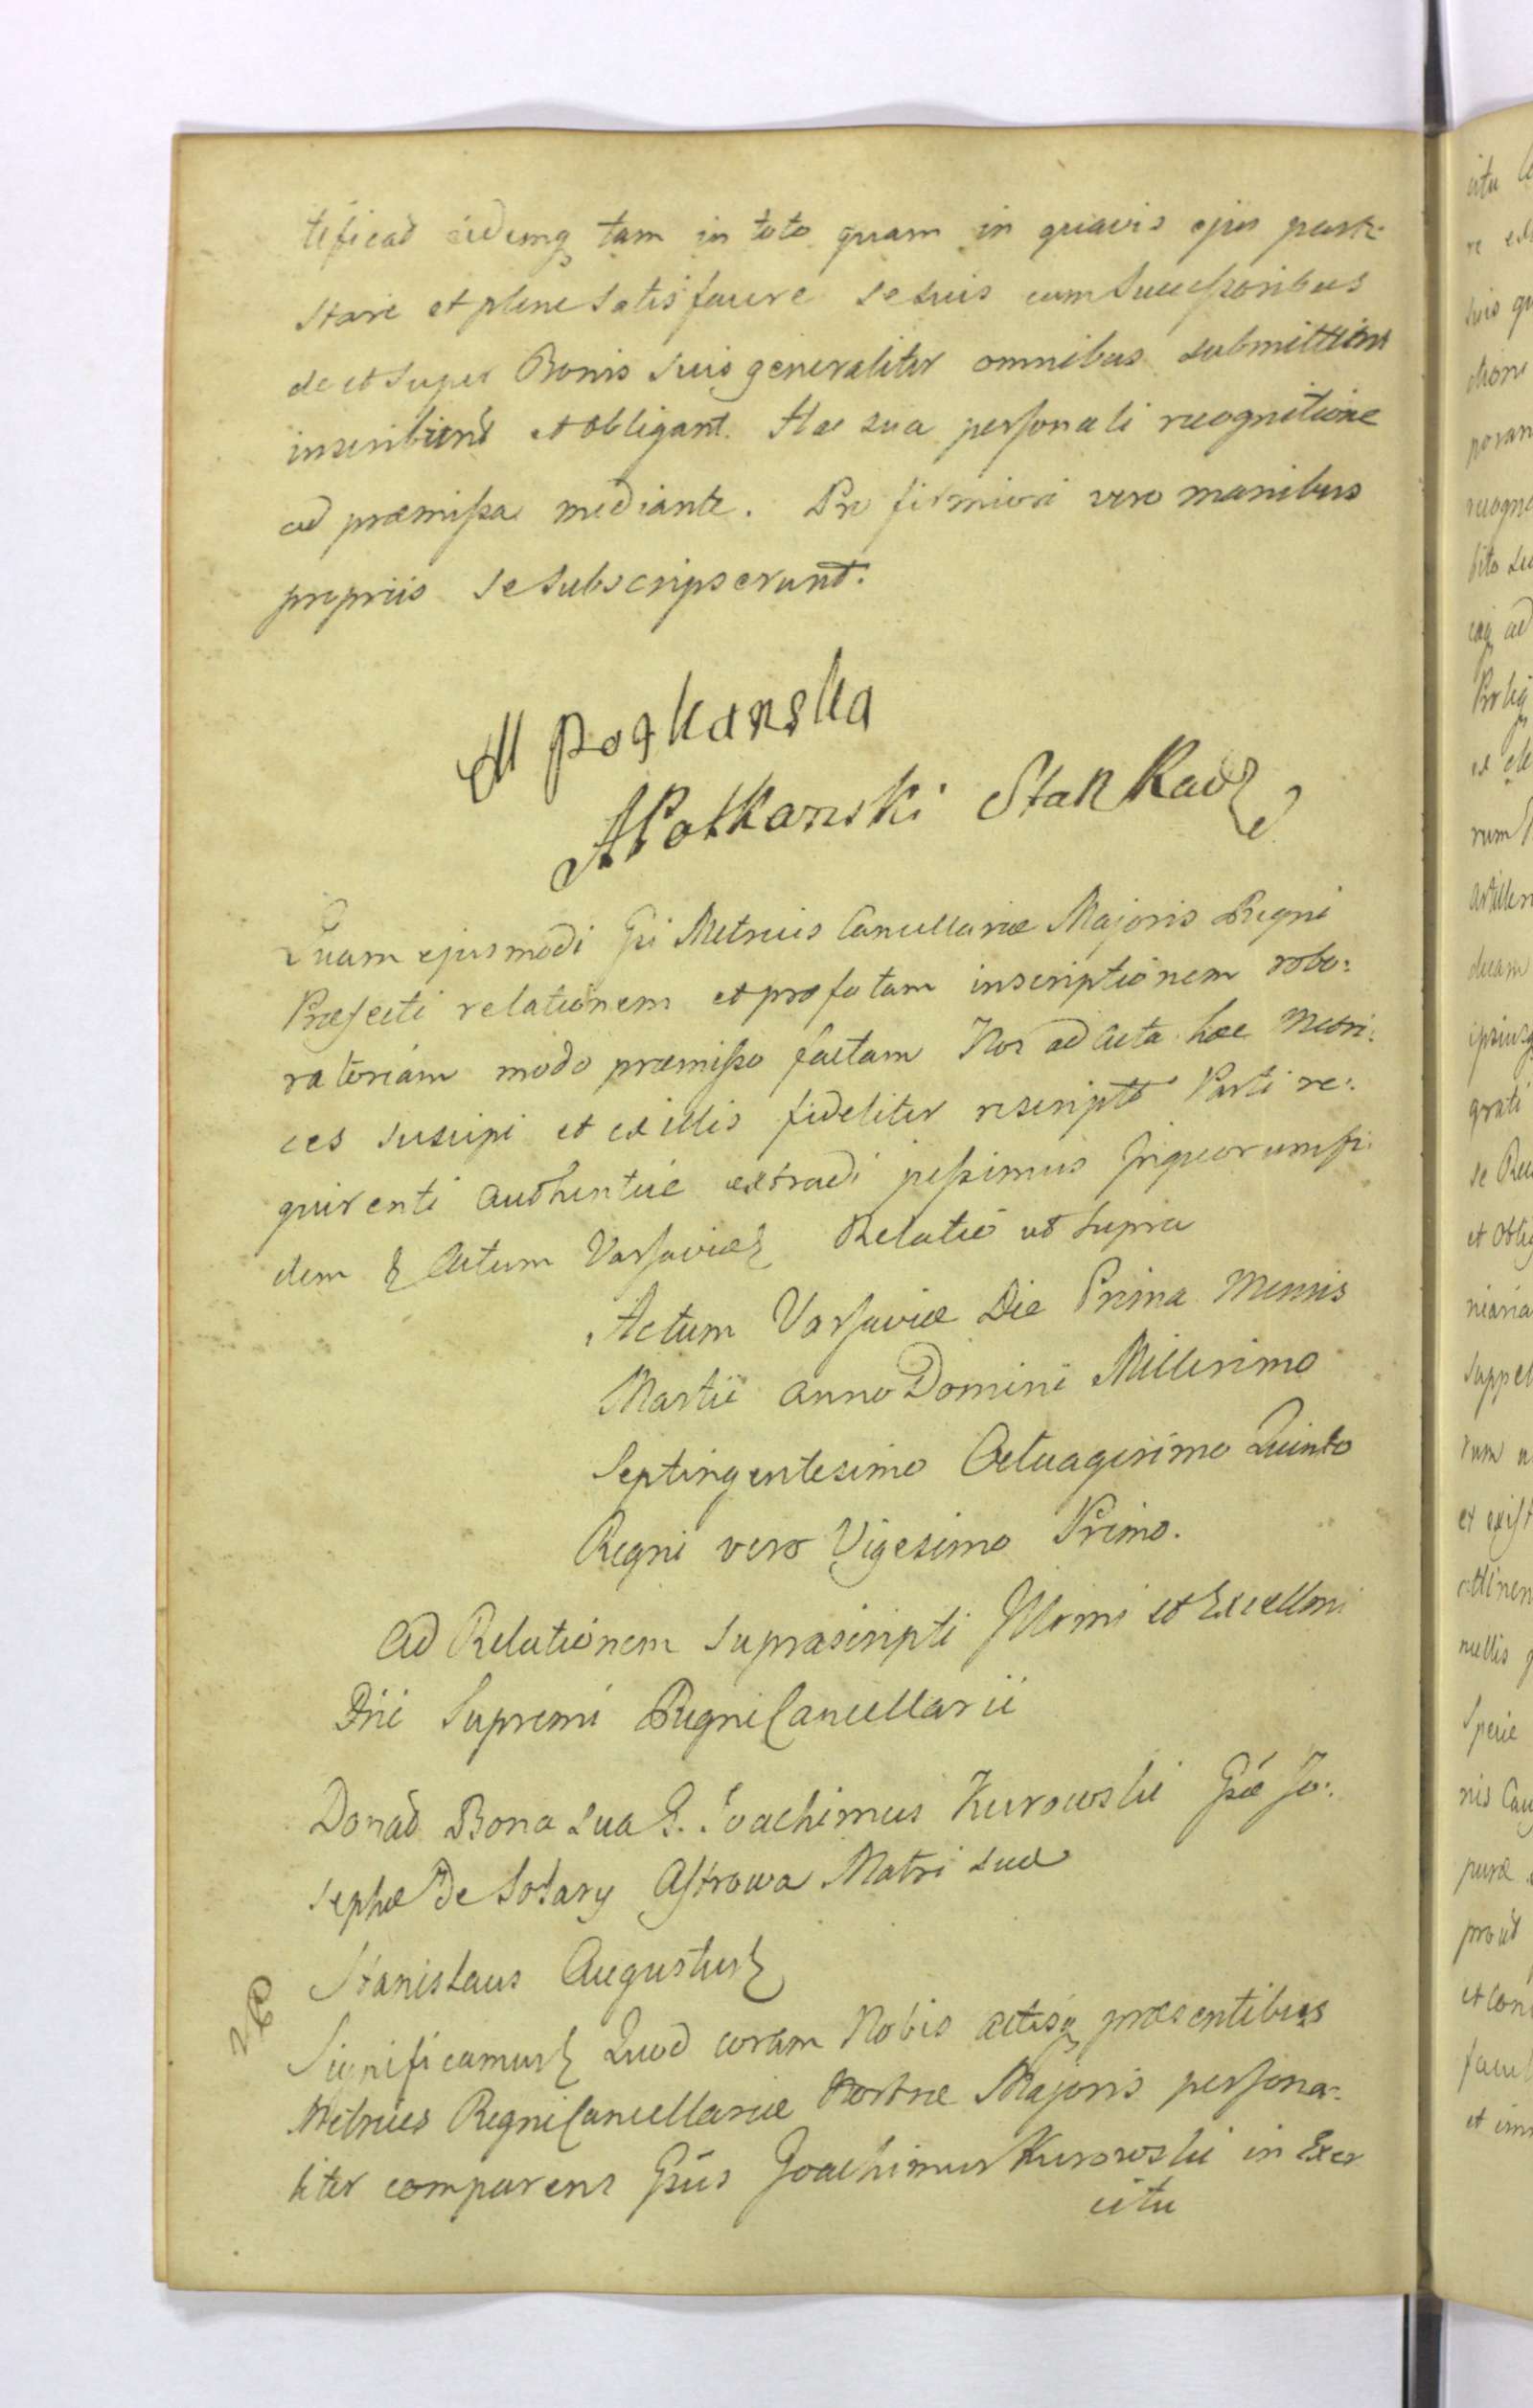 tificat eidemq tam in toto quam in quavis ejus parte
stare et plene satisfacere se suis cum Successoribus
de et super Bonis suis generaliter omnibus submittunt
inscribunt et obligant. Hac sua personali recognitione
ad præmissa mediante. Pro firmiori vero manibus
propriis se subscripserunt.
M Potkanska
A Potkanski Stan Rad
Quam ejusmodi Gsi Metrices Cancellariæ Majoris Regni
Præfecti relationem et præfatam inscriptionem robo:
ratoriam modo præmisso factam Nos ad Acta hæc Metri:
ces suscipi et ex illis fideliter rescript Parti re:
quirenti authentice extradi jussimus Inquorum fi:
dem & Actum Varsaviæ Relatio ut supra
Actum Varsaviæ Die Prima Mensis
Martii Anno Domini Millesimo
Septingentesimo Octuagesimo Quinto
Regni vero Vigesimo Primo.
Ad Relationem Suprascripti Illmi et Excellmi
Dni Supremi Regni Cancellarii
Donat Bona sua G. Joachimus Kurowski Gsæ Jo:
sephæ De Matri suæ
Stanislaus Augustus
Significamus Quod coram Nobis Actisq præsentibus
Metrices Regni Cancellariæ Nostræ Majoris persona:
liter comparens Gsus Joachimus Kurowski in Exer
citu